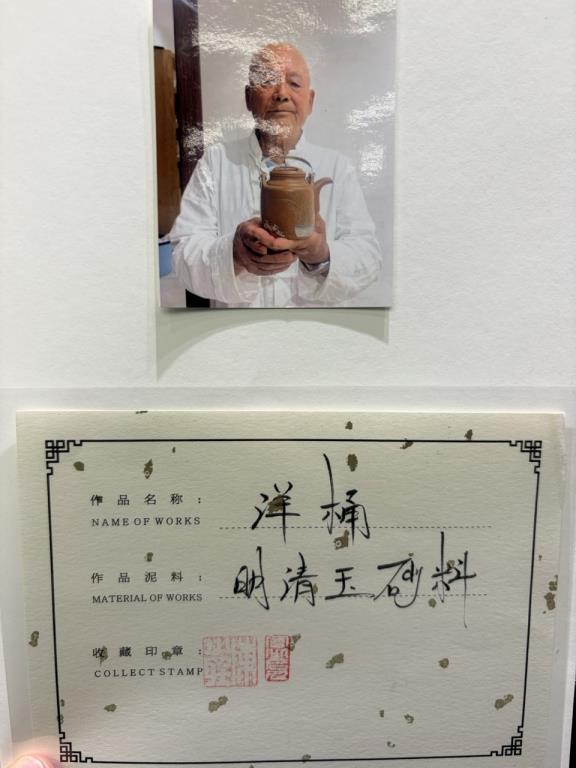 作品名称：洋桶
NAME OF WORKS
作品泥料：明清玉砂料
MATERIAL OF WORKS
收藏印章：
COLLECT STAMP